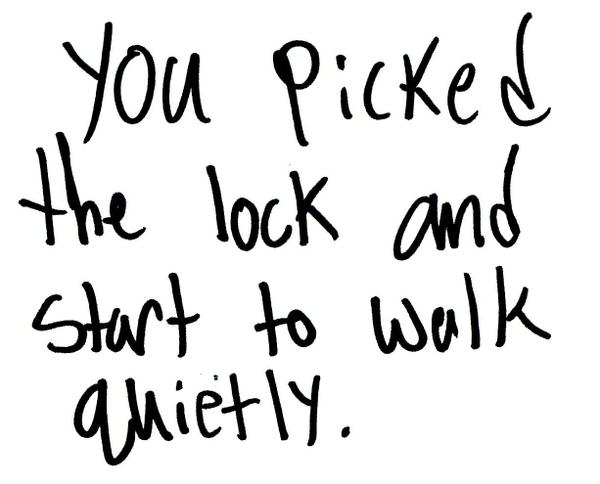 You Picked
the lock and
start to walk
quietly.